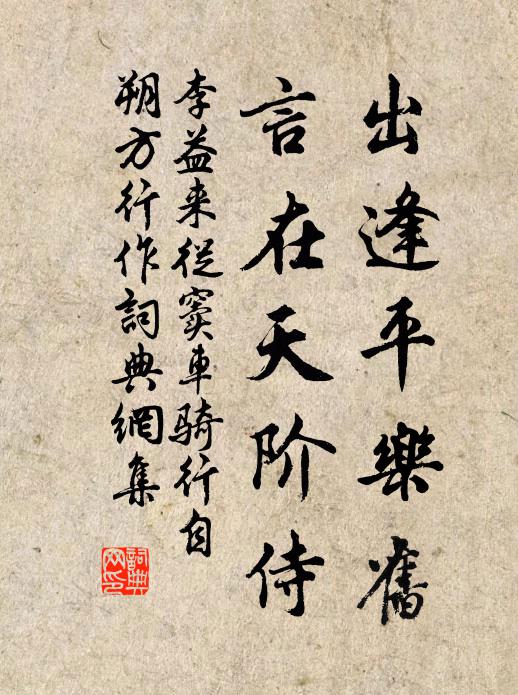 出逢平樂舊
言在天阶侍
李益来從窦車騎行自
朔方行作詞典網集
詞典网印